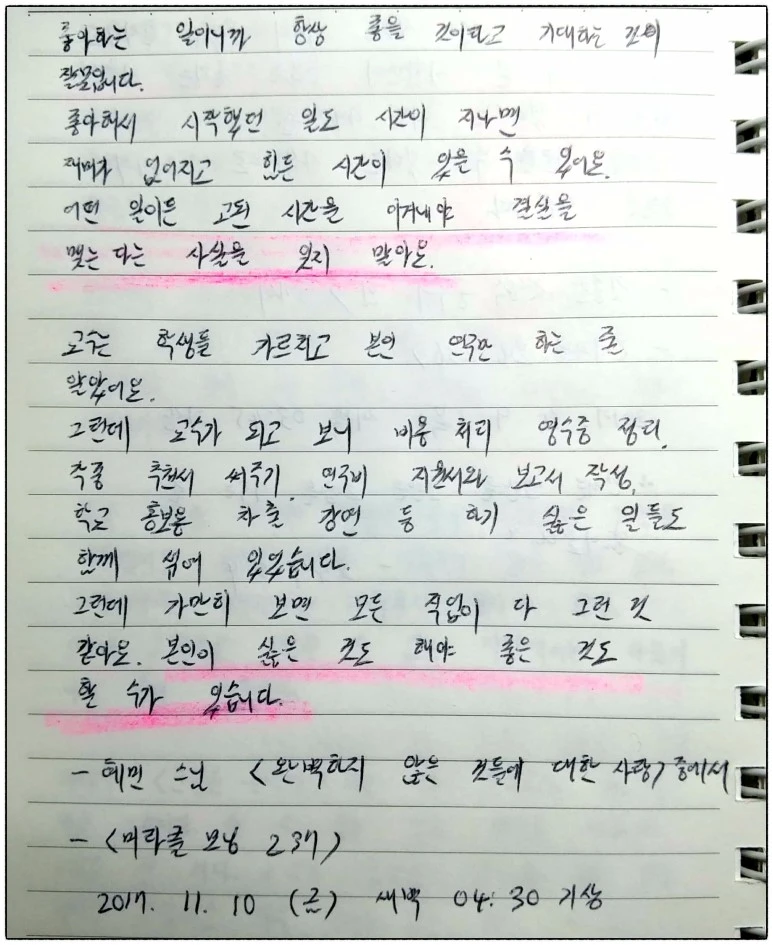 좋아하는 일이니까 항상 좋을 것이라고 기대하는 것이
잘못입니다.
좋아해서 시작했던 일도 시간이 지나면
재미가 없어지고 힘든 시간이 있을 수 있어요.
어떤 일이든 고된 시간을 이겨내야 결실을
맺는다는 사실을 잊지 말아요.
교수는 학생들 가르치고 본인 연구만 하는 줄
알았어요.
그런데 교수가 되고 보니 비용 처리 영수증 정리,
각종 추천서 써주기, 연구비 지원서와 보고서 작성,
학교 홍보용 차출 강연 등 하기 싫은 일들도
함께 섞여 있었습니다.
그런데 가만히 보면 모든 직업이 다 그런 것
같아요. 본인이 싫은 것도 해야 좋은 것도
할 수가 있습니다.
- 혜민 스님 <완벽하지 않은 것들에 대한 사랑> 중에서
- <미라클 모닝 237>
2017. 11. 10 (금) 새벽 04:30 기상